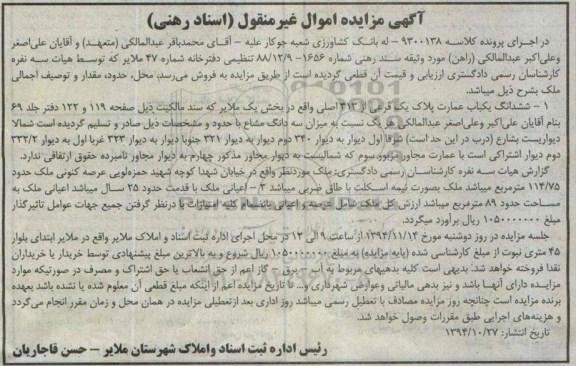 آگهی مزایده اموال غیرمنقول (اسناد رهنی)
در اجرای پرونده کلاسه ۹۳۰۰۱۳۸ – له بانک کشاورزی شعبه جوکار علیه – آقای محمدباقر عبدالمالکی (متعهد) و آقایان علی‌اصغر
وعلی‌اکبر عبدالمالکی (راهن) مورد وثیقه سند رهنی شماره ۱۶۵۶– ۸۸/۱۲/۹ تنظیمی دفترخانه شماره ۴۷ ملایر که توسط هیات سه نفره
کارشناسان رسمی دادگستری ارزیابی و قیمت آن قطعی گردیده است از طریق مزایده به فروش می‌رسد، محل، حدود، مقدار و توصیف اجمالی
ملک بشرح ذیل می‌باشد.
۱ – ششدانگ یکباب عمارت پلاک یک فرعی از ۳۱۳ اصلی واقع در بخش یک ملایر که سند مالکیت ذیل صفحه ۱۱۹ و ۱۲۲ دفتر جلد ۶۹
بنام آقایان علی‌اکبر وعلی‌اصغر عبدالمالکی هر یک نسبت به میزان سه دانگ مشاع با حدود و مشخصات ذیل صادر و تسلیم گردیده است شمالا
دیواریست بشارع (درب در این حد است) شرقا اول دیوار به دیوار ۳۴۰ دوم دیوار به دیوار ۳۲۱ جنوبا دیوار به دیوار ۳۲۳ غربا اول به دیوار ۳۳۲/۲
دوم دیوار اشتراکی است با عمارت مجاور مزبور سوم که شمالیست به دیوار مجاور مذکور چهارم به دیوار مجاور نامبرده حقوق ارتفاقی ندارد.
گزارش هیات سه نفره کارشناسان رسمی دادگستری: ملک موردنظر واقع در خیابان شهدا کوچه شهید حمزه‌لویی عرصه کنونی ملک حدود
۱۱۴/۷۵ مترمربع میباشد ملک بصورت نیمه اسکلت با طاق ضربی میباشد ۳ – اعیانی ملک با قدمت حدود ۲۵ سال میباشد اعیانی ملک به
مساحت حدود ۸۹ مترمربع میباشد ارزش کل ملک شامل عرصه و اعیانی بانضمام کلیه امتیازات با درنظر گرفتن جمیع جهات عوامل تاثیرگذار
مبلغ ۱۰۵۰۰۰۰۰۰۰ ریال برآورد میگردد.
جلسه مزایده در روز دوشنبه مورخ ۱۳۹۴/۱۱/۱۴ از ساعت ۹ الی ۱۲ در محل اجرای اداره ثبت اسناد و املاک ملایر واقع در ملایر ابتدای بلوار
۴۵ متری نبوت از مبلغ کارشناسی شده (پایه مزایده) به مبلغ ۱۰۵۰۰۰۰۰۰۰ ریال شروع و به بالاترین مبلغ پیشنهادی توسط خریدار یا خریداران
نقدا فروخته خواهد شد. بدیهی است کلیه بدهیهای مربوط به آب – برق – گاز اعم از حق انشعاب یا حق اشتراک و مصرف در صورتیکه موارد
مزایده دارای آنها باشد و نیز بدهی مالیاتی وعوارض شهرداری و... تا تاریخ مزایده اعم از اینکه مبلغ قطعی آن معلوم شده یا نشده باشد بعهده
برنده مزایده است چنانچه روز مزایده مصادف با تعطیل رسمی میباشد روز اداری بعد ازتعطیلی مزایده در همان محل و زمان مقرر انجام می‌گردد
و هزینه‌های اجرایی طبق مقررات وصول خواهد شد.
تاریخ انتشار: ۱۳۹۴/۱۰/۲۷
رئیس اداره ثبت اسناد واملاک شهرستان ملایر – حسن قاجاریان